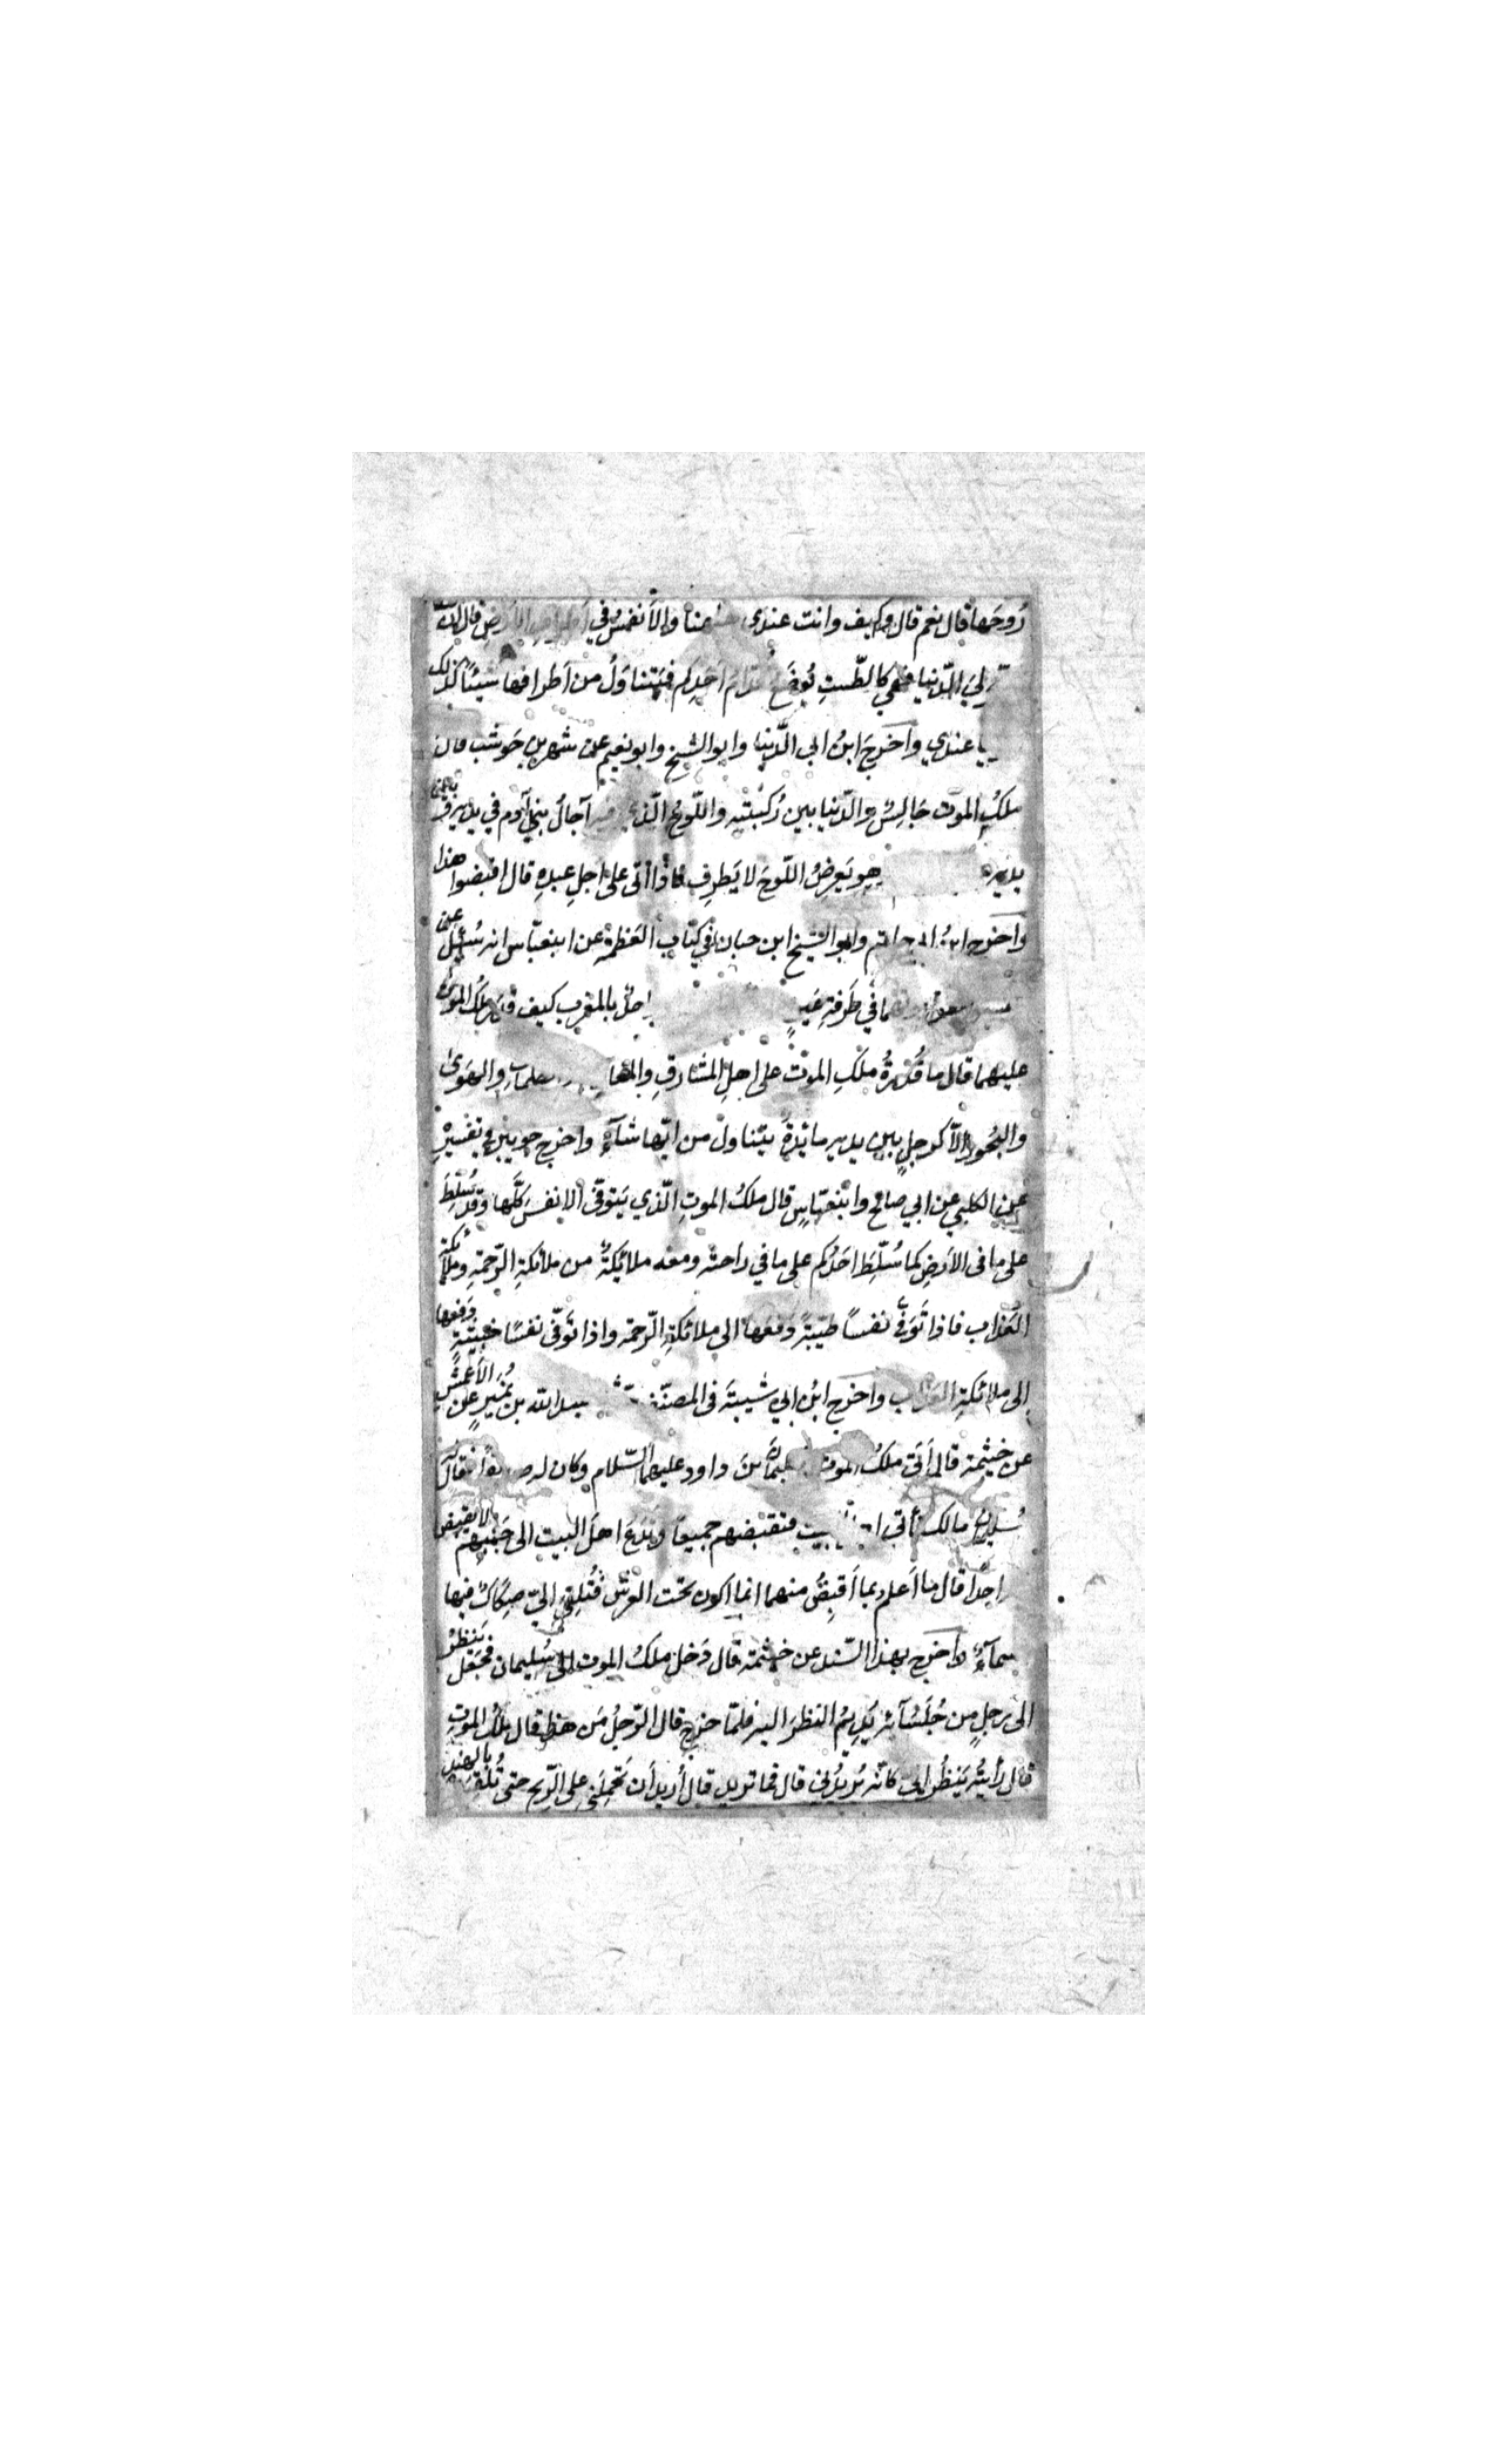 رُوحَها قال نعم قال وكيف وانت عندي هنا والأنفسُ في الأرضِ قال انّ
لي الدّنيا فهي كالطّستِ يُوضَعُ قدّامَ اَحَدِكم فيَتناوَلُ من اَطرافها شيئًا كذلك
عندي واَخرجَ ابنُ ابي الدّنيا وابو الشيخ وابو نعيم عن شهر بن حَوشب قال
ملكُ الموت جَالِسٌ والدّنيا بين رُكبَتَيه واللّوحُ الّذي فيه آجالُ بني آدم في يديه وبين
يديه يَعرِضُ اللّوحَ لا يَطرِف فاذا اَتى على اَجلِ عبدٍ قال اقبضوا هذا
واَخرج ابنُ ابي حاتم وابو الشيخ ابن حبان في كتاب العَظمة عن ابن عبّاس انه سُئلَ عن
في طَرفةِ عَينٍ بالمغرب كيف ملكُ الموت
عليهما قال ما قُدرةُ ملكِ الموت على اهلِ المشَارقِ والمغاربِ والهَوى
والبُحورِ الّا كرجلٍ بين يديه مائدةٌ يتناول من ايّها شآء واخرج جويبر في تفسيرِ
عن الكلبي عن ابي صالح وابنعبّاسٍ قال ملكُ الموتِ الّذي يَتوفّى الانفسَ كلَّها وقد سُلّطَ
على ما فى الاَرضِ كما سُلّطَ احَدُكم على ما في راحته ومعه ملائكةٌ من ملائكةِ الرّحمةِ وملائكة
العَذاب فاذا تَوَفّى نفساً طيّبةً دَفعَها الى ملائكةِ الرّحمة واذا تَوَفّى نفسًا خبيثةً دَفعها
الى ملائكةِ العَذاب واخرج ابنُ ابي شيبةَ فى المصنّف بن نُمَيرٍ عن الاَعمشِ
عن خيثمة قال اَتى ملكُ الموت سليمانَ بنَ داود عليهما السّلام وكان له صديقًا فقال له
سُليمان مالك تأتي اهلَ البيت فتقبضهم جميعًا وتَدَعَ اهلَ البيت الى جَنبهم لا تقبض
احدًا قال ما اَعلم بما اَقبِضُ منها انما اكون تحت العرش فتُلقى اليّ صِكاكٌ فيها
سمآءٌ واخرج بهذا السّند عن خيثمة قال دَخل ملكُ الموت الى سُليمان فجَعَل يَنظُرُ
الى رجلٍ من جُلَسَآئه يُديمُ النظرَ اليه فلمّا خرج قال الرّجلُ مَن هذا قال ملكُ الموتِ
قال رأيتُه يَنظُر اليّ كانّه يُريدُني قال فما تريد قال اُريد اَن تَحمِلَني على الرّيح حتى تُلقيَني بالهِندِ